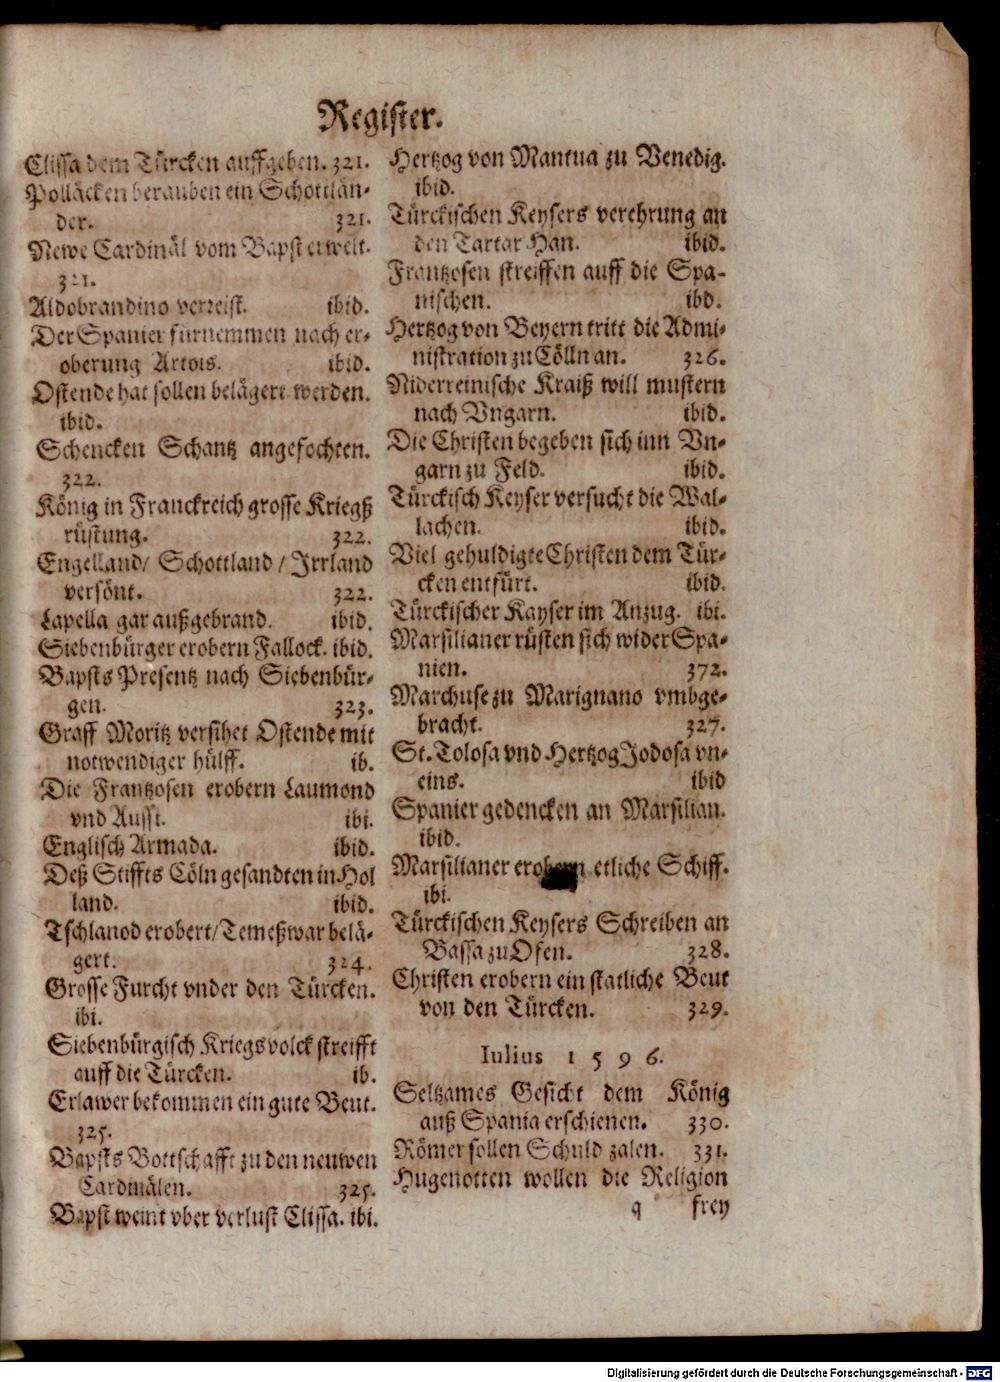 Register.
Clissa dem Türcken auffgeben. 321.
Polläcken berauben ein Schottlän-
der. 321.
Newe Cardinäl vom Bapst erwelt.
321.
Aldobrandino verreist. ibid.
Der Spanier fürnemmen nach er-
oberung Artois. ibid.
Ostende hat sollen belägert werden.
ibid.
Schencken Schantz angefochten.
322.
König in Franckreich grosse Kriegß
rüstung. 322.
Engelland/ Schottland / Irrland
versönt. 322.
Lapella gar außgebrand. ibid.
Siebenbürger erobern Fallock. ibid.
Bapsts Presentz nach Siebenbür-
gen. 323.
Graff Moritz versihet Ostende mit
notwendiger hülff. ib.
Die Frantzosen erobern Laumond
vnd Aussi. ibi.
Englisch Armada. ibid.
Deß Stiffts Cöln gesandten in Hol
land. ibid.
Tschlanod erobert/Temeßwar belä-
gert. 324.
Grosse Furcht vnder den Türcken.
ibi.
Siebenbürgisch Kriegsvolck streifft
auff die Türcken. ib.
Erlawer bekommen ein gute Beut.
325.
Bapsts Bottschafft zu den neuwen
Cardinälen. 325.
Bapst weint vber verlust Clissa. ibi.
Hertzog von Mantua zu Venedig.
ibid.
Türckischen Keysers verehrung an
den Tartar Han. ibid.
Frantzosen streiffen auff die Spa-
nischen. ibd.
Hertzog von Beyern tritt die Admi-
nistration zu Cölln an. 326.
Niderreinische Kraiß will mustern
nach Vngarn. ibid.
Die Christen begeben sich inn Vn-
garn zu Feld. ibid.
Türckisch Keyser versucht die Wal-
lachen. ibid.
Viel gehuldigte Christen dem Tür-
cken entfürt. ibid.
Türckischer Kayser im Anzug. ibi.
Marsilianer rüsten sich wider Spa-
nien. 372.
Marchuse zu Marignano vmbge-
bracht. 327.
St. Tolosa vnd Hertzog Jodosa vn-
eins. ibid
Spanier gedencken an Marsilian.
ibid.
Marsilianer erobern etliche Schiff.
ibi.
Türckischen Keysers Schreiben an
Bassa zu Ofen. 328.
Christen erobern ein statliche Beut
von den Türcken. 329.
Iulius 1 5 9 6.
Seltzames Gesicht dem König
auß Spania erschienen. 330.
Römer sollen Schuld zalen. 331.
Hugenotten wollen die Religion
q frey
Digitalisierung gefördert durch die Deutsche Forschungsgemeinschaft - DFG